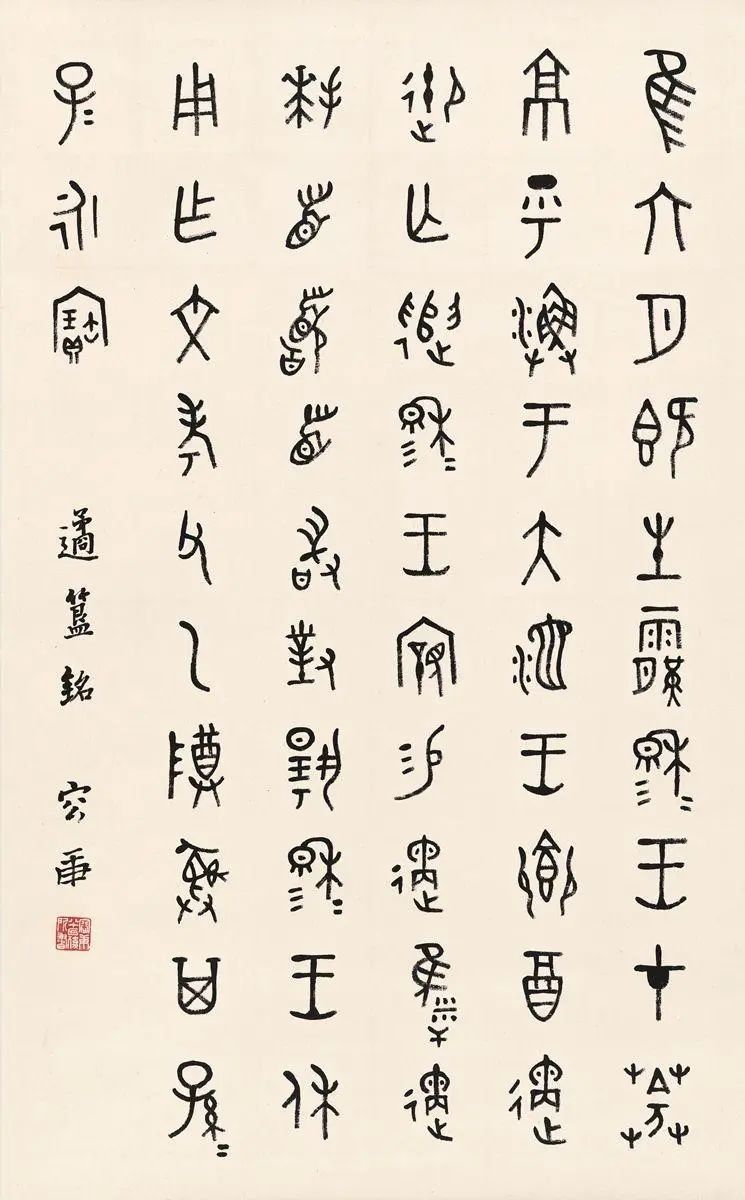 隹六月既生霸穆=王才葊
京乎漁于大池王鄉酉遹
御亡遣穆=王親易遹遹
拜首䭫首敢對揚穆=王休
用乍文考父乙尊彝其孫=
子=永寶
遹簋銘 容庚